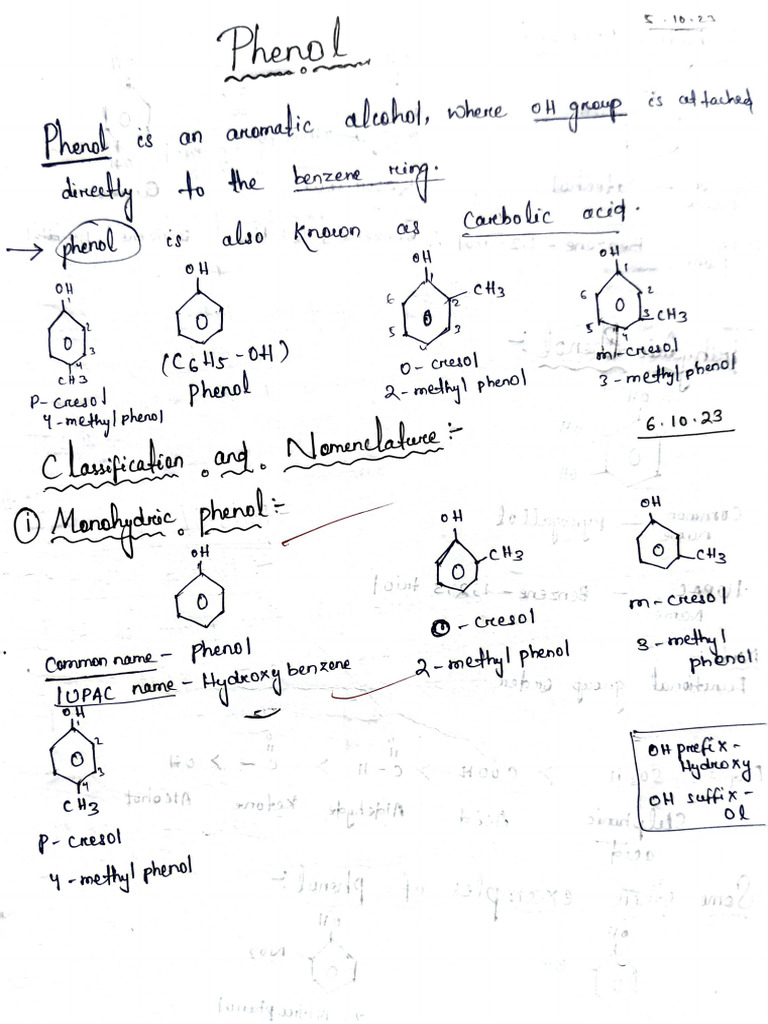 5.10.23
Phenol
Phenol is an aromatic alcohol, where OH group is attached
directly to the benzene ring.
→ phenol is also known as Carbolic acid.
OH
1
2
3
4
CH3
P-cresol
4-methyl phenol
OH
(C6H5-OH)
Phenol
OH
1
2
CH3
3
4
5
6
O-cresol
2-methyl phenol
OH
1
2
3
CH3
4
5
6
m-cresol
3-methyl phenol
6.10.23
Classification and Nomenclature:-
(i) Monohydric phenol:-
OH
Common name - Phenol
IUPAC name - Hydroxy benzene
OH
CH3
O-cresol
2-methyl phenol
OH
CH3
m-cresol
3-methyl
phenol
OH
1
2
3
4
CH3
p-cresol
4-methyl phenol
OH prefix-
Hydroxy
OH suffix-
Ol